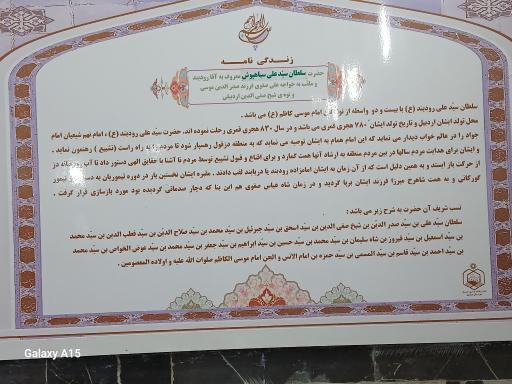 زندگی نامه
حضرت سلطان سیّد علی سیاهپوش معروف به آقا رودبند
و ملقب به خواجه علی صفوی فرزند صدر الدین موسی
و نوه ی شیخ صفی الدین اردبیلی
سلطان سیّد علی رودبند (ع) با بیست و دو واسطه از نوادگان امام موسی کاظم (ع) می باشد .
محل تولد ایشان اردبیل و تاریخ تولد ایشان ۷۸۰ هجری قمری می باشد و در سال ۸۳۰ هجری قمری رحلت نموده اند. حضرت سیّد علی رودبند (ع) ، امام نهم شیعیان امام
جواد را در عالم خواب دیدار می نماید که این امام همام به ایشان توصیه می نماید که به منطقه دزفول رهسپار شود تا مردم را به راه راست (تشیع) رهنمون نماید .
و ایشان برای هدایت مردم سالها در بین مردم منطقه به ارشاد آنها همت گمارد و برای اقناع و قبول تشیع توسط مردم نا آشنا با حقایق الهی دستور داد تا آب رودخانه دز
از حرکت باز ایستد و به همین دلیل است که از آن زمان به ایشان امامزاده رودبند یا دریابند لقب دادند. مقبره ایشان نخستین بار در دوره تیموریان به دستور تیمور
گورکانی و به همت شاهرخ میرزا فرزند ایشان برپا گردید و در زمان شاه عباس صفوی هم این بنا که دچار صدماتی گردیده بود مورد بازسازی قرار گرفت .
نسب شریف آن حضرت به شرح زیر می باشد :
سلطان سیّد علی بن سیّد صدر الدین بن شیخ صفی الدین بن سیّد اسحق بن سیّد جبرئیل بن سیّد محمد بن سیّد صلاح الدین بن سیّد قطب الدین بن سیّد محمد
بن سیّد اسمعیل بن سیّد فیروز بن شاه سلیمان بن سیّد محمد بن سیّد حسین بن سیّد ابراهیم بن سیّد جعفر بن سیّد محمد بن سیّد محمد بن سیّد عوض الخواص بن سیّد محمد
بن سیّد احمد بن سیّد قاسم بن سیّد المسمی بن سیّد حمزه بن امام الانس و الجن امام موسی الکاظم صلوات الله علیه و اولاده المعصومین .
Galaxy A15